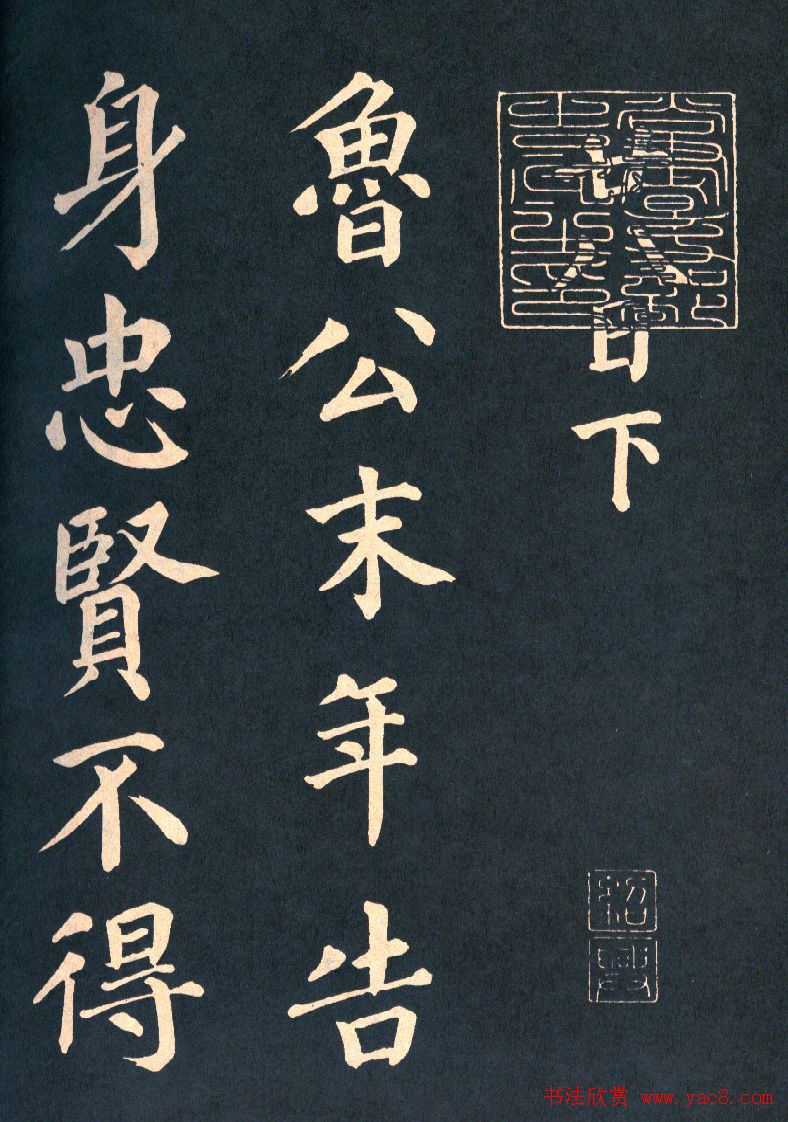 廿八日下
魯公末年告
身忠賢不得
紹興
书法欣赏 www.yac8.com